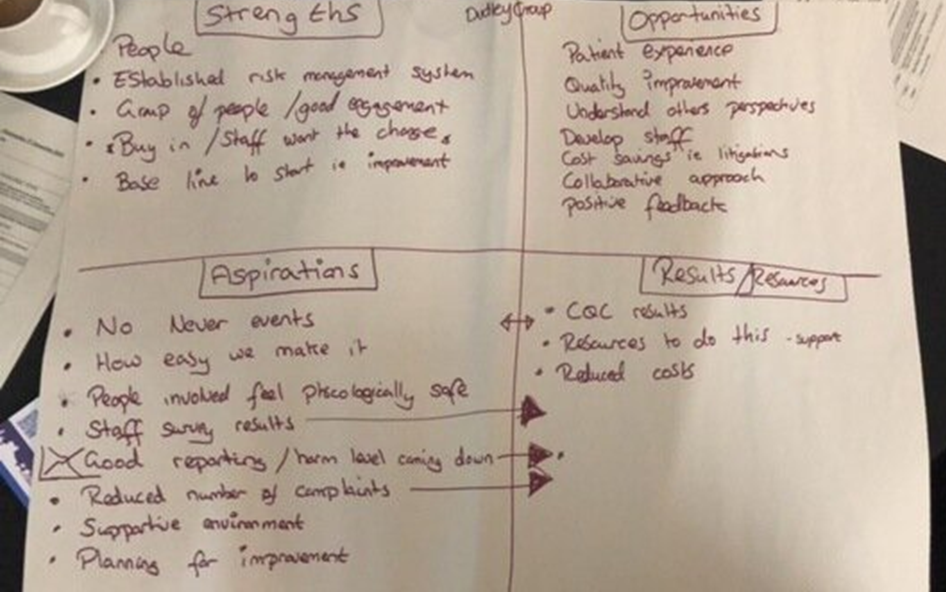 Strengths
Dudley Group
Opportunities
People
• Established risk management system
• Group of people /good engagement
• Buy in / Staff want the change
• Base line to start ie improvement
Patient experience
Quality improvement
Understand others perspectives
Develop staff
Cost savings ie litigations
Collaborative approach
Positive feedback
Aspirations
• No Never events
• How easy we make it
• People involved feel phscologically safe
• Staff survey results
Good reporting / harm level coming down
• Reduced number of complaints
• Supportive environment
• Planning for improvement
Results/Resources
• CQC results
• Resources to do this - support
• Reduced costs